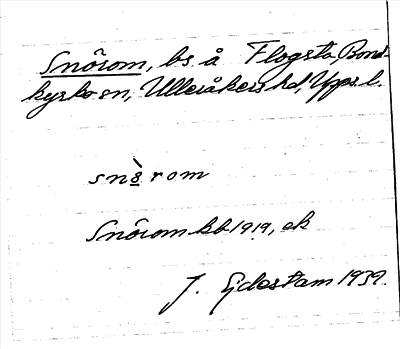 Snörom, bs å Flogsta, Bond-
kyrko sn, Ulleråkers hd, Upps. l.
snö̀rom
Snörom kb 1919, ek
J. Ejdestam 1939.